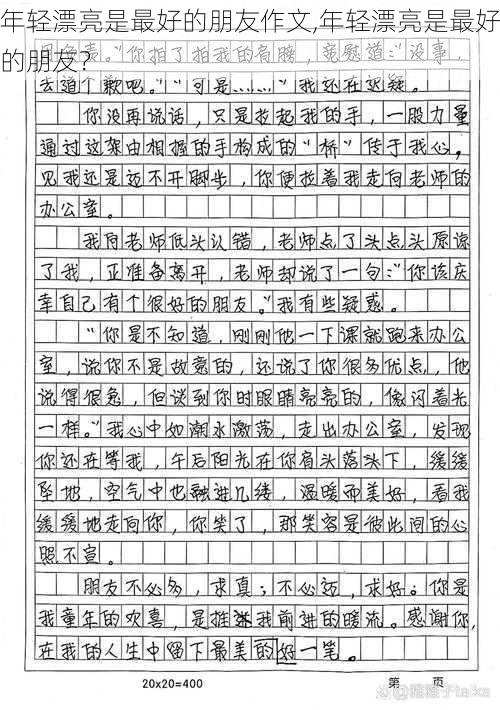 年轻漂亮是最好的朋友作文,年轻漂亮是最好
的朋友?
你拍了拍我的肩膀，宽慰道：“没事，
去道个歉吧。”“可是……”我还在迟疑。
你没再说话，只是拉起我的手，一股力量
通过这架由相握的手构成的“桥”传于我心，
见我还是迈不开脚步，你便拉着我走向老师的
办公室。
我向老师低头认错，老师点了头点头原谅
了我，正准备离开，老师却说了一句：“你该庆
幸自己有个很好的朋友。”我有些疑惑。
“你是不知道，刚刚他一下课就跑来办公
室，说你不是故意的，还说了你很多优点，他
说得很急，但谈到你时眼睛亮亮的，像闪着光
一样。”我心中如潮水激荡，走出办公室，发现
你还在等我，午后阳光在你肩头落头下，缓缓
坠地，空气中也融进几缕，温暖而美好，看我
缓缓地走向你，你笑了，那笑容是彼此间的心
照不宣。
朋友不必多，求真；不必远，求好。你是
我童年的欢喜，是推我前进的暖流。感谢你，
在我的人生中留下最美的好一笔。
20×20=400
第 页
知乎